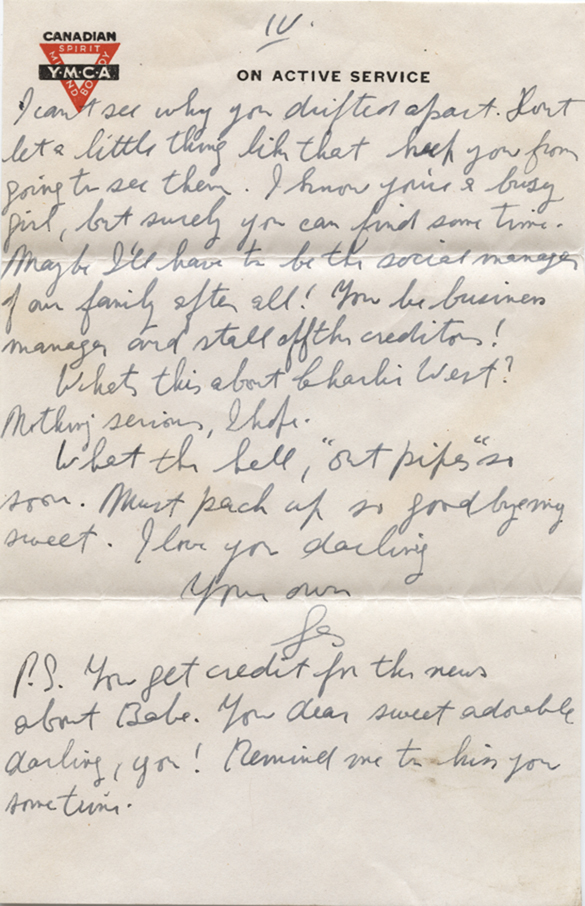 IV.
CANADIAN
SPIRIT
MIND
BODY
Y·M·C·A
ON ACTIVE SERVICE
I can't see why you drifted apart. Dont
let a little thing like that keep you from
going to see them. I know you're a busy
girl, but surely you can find some time.
Maybe I'll have to be the social manager
of our family after all! You be business
manager and stall off the creditors!
Whats this about Charlie West?
Nothing serious, I hope.
What the hell, "out pipes" so
soon. Must pack up so goodbye my
sweet. I love you darling
Your own
Les
P.S. You get credit for the news
about Babe. You dear sweet adorable
darling, you! Remind me to kiss you
sometime.